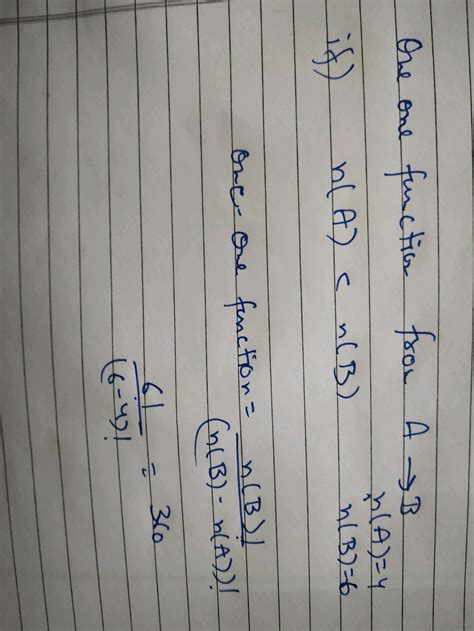 One one function from A → B
n(A) = 4
if) n(A) < n(B) n(B) = 6
one-one function = n(B)! / (n(B) - n(A))!
6! / (6-4)! = 360